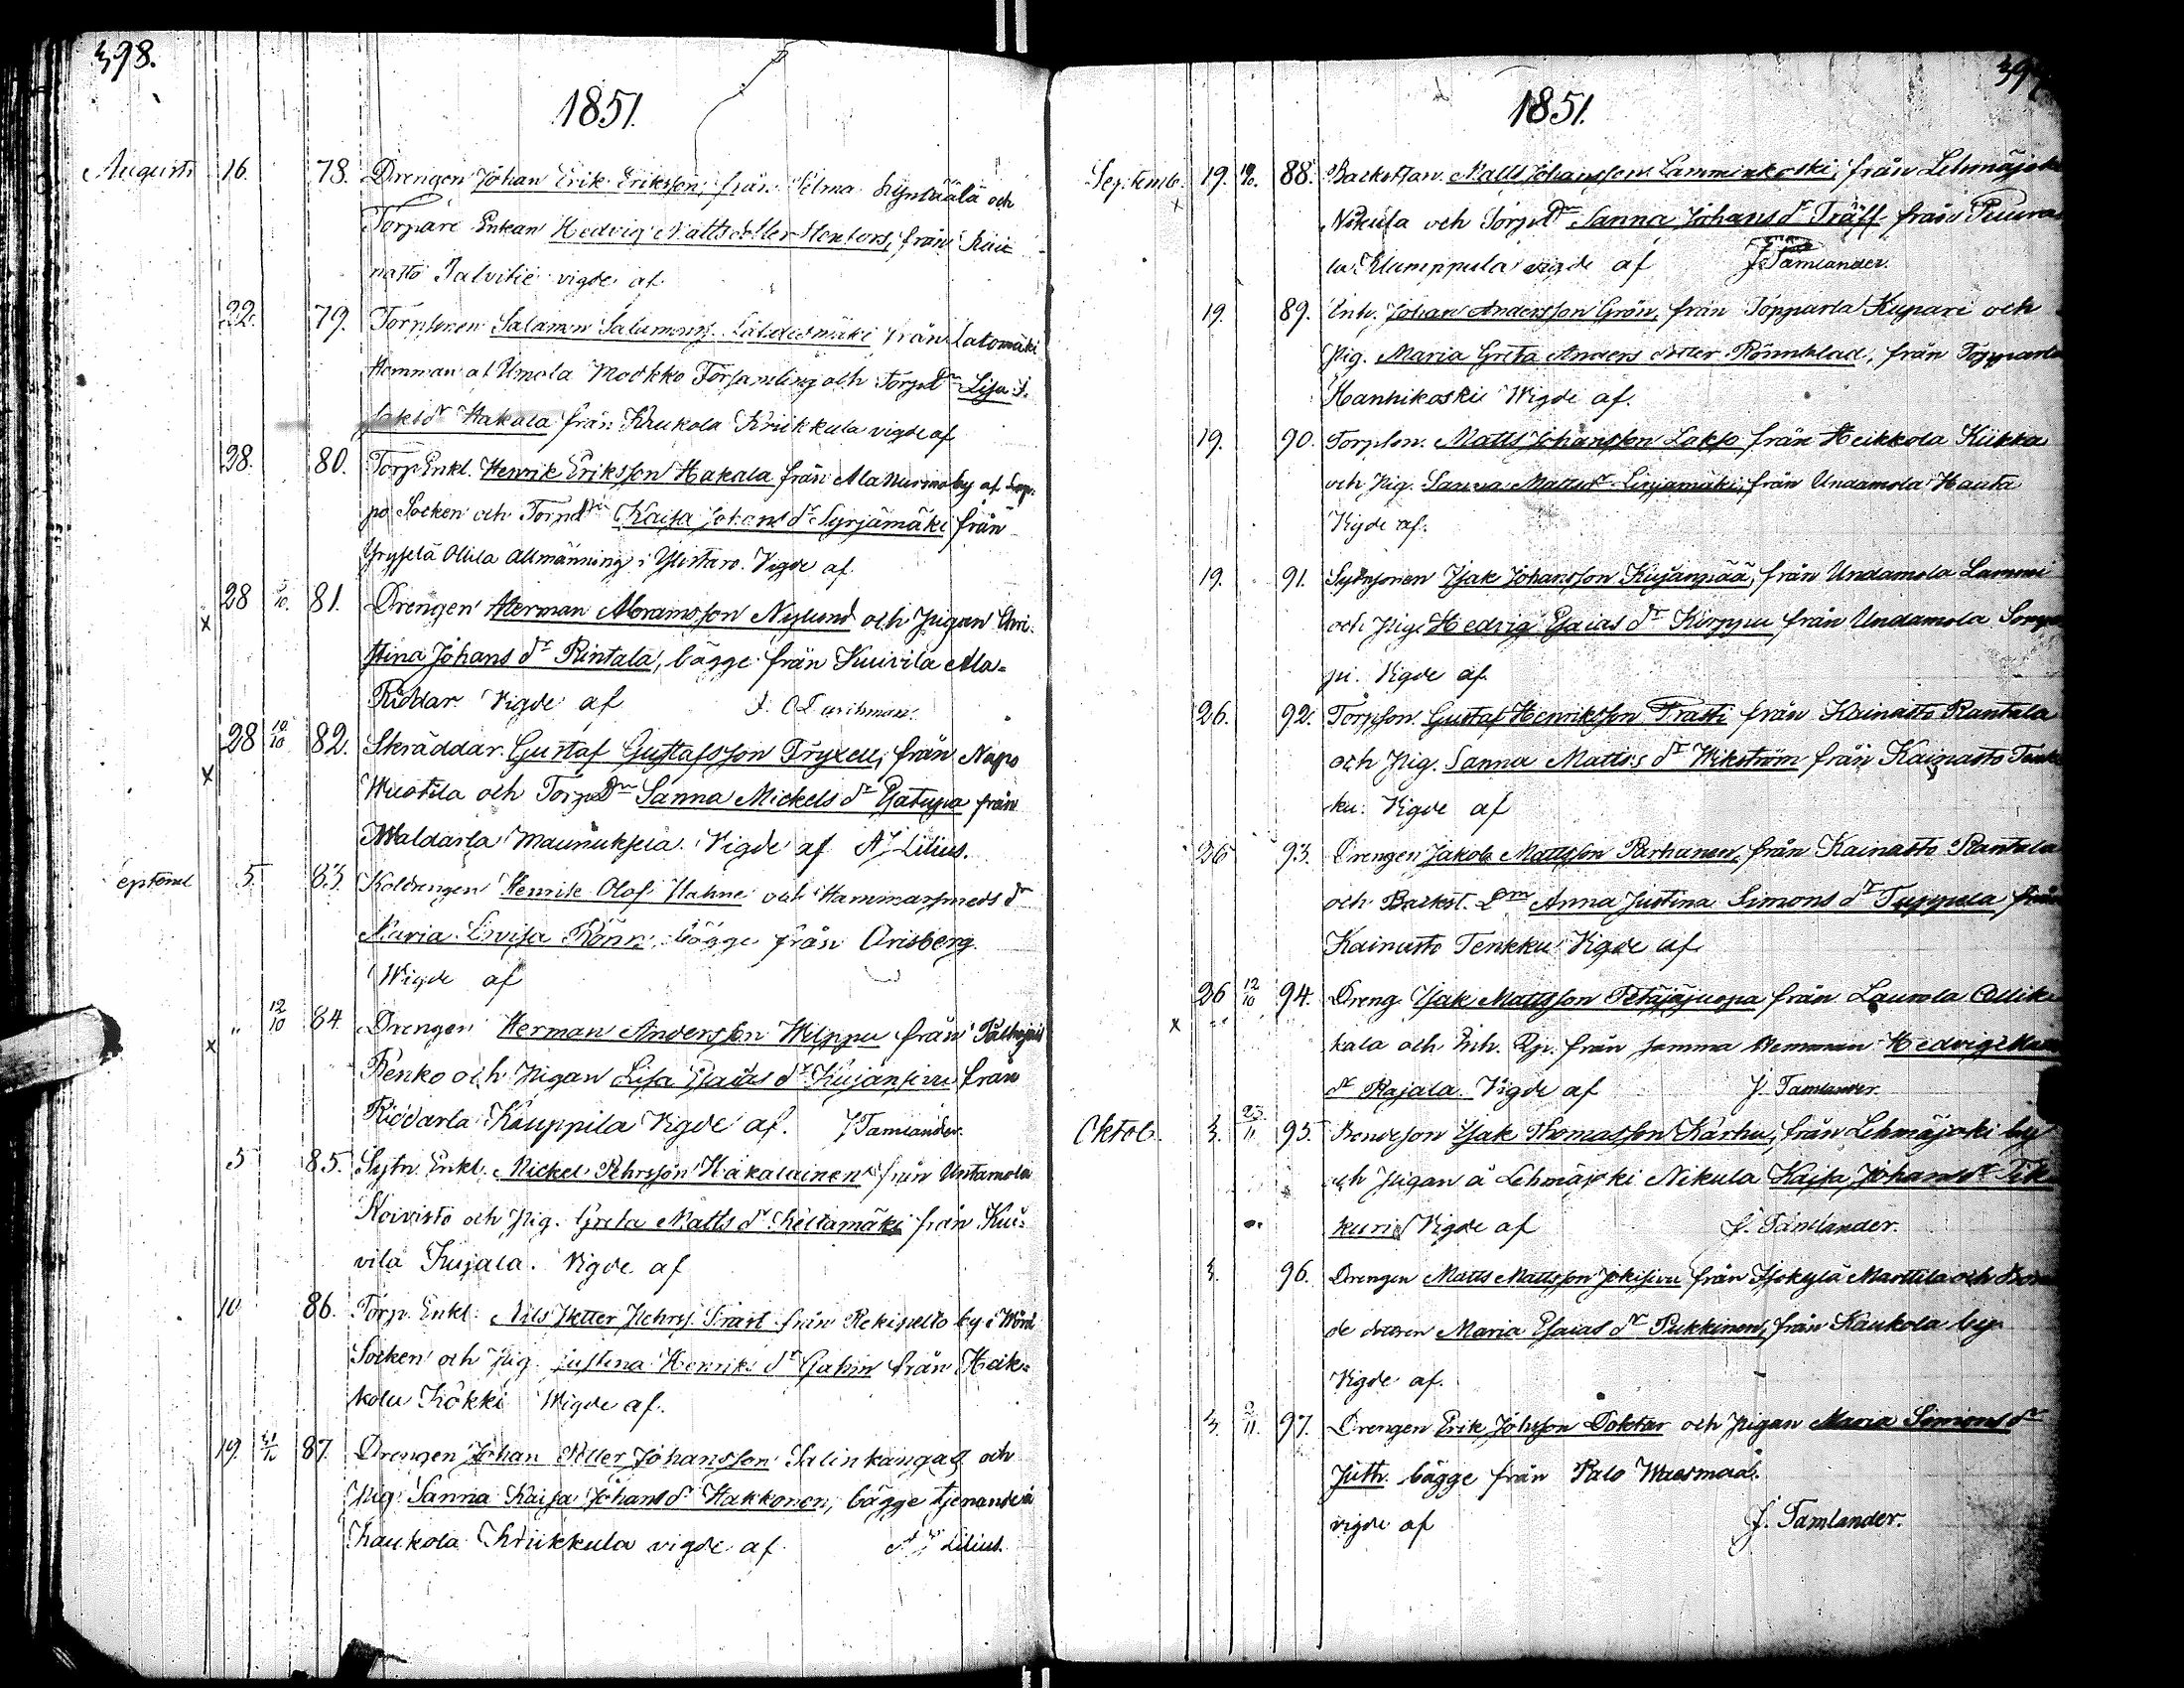 398.
1851.
Augusti 16. 78. Drengen Johan Erik Eriksson, från Selma och
Torpare Enkan Hedvig Matts dotter från
nasto Talvitie vigde af
22. 79. Torpsonen Salamon från Latomäki
Hemman at Församling och Torp Dn Lisa I.
saks dr Hakala från Kaukola Kriikkula vigde af
28. 80. Torp Enkl. Henrik Eriksson Hakala från Ala Nurmo by af Lap-
po Socken och Torp Kaisa Johans dr Syrjämäki från
Ollila Allmänning i Ylistaro. Vigde af
28 10. 81. Drengen Herman Abramsson Nylund och Pigan Chri-
x
stina Johans dr Rintala, bägge från Kuivila Ala-
Riddar Vigde af
28 10/10 82. Skräddar. Gustaf Gustafsson Fryxell, från Napo
x
Wuotila och Torp Dn Sanna Mickels dr från
Waldarla Vigde af A J Lilius.
eptemb 5. 83. Koldrengen Henrik Olof och Hammarsmeds dn
Maria Lovisa Rönn, bägge från Orisberg.
Wigde af
" 12/10 84. Drengen Herman Andersson Wilppu från
x
Renko och Pigan Lisa Esaias dr Kujansivu från
Riddarla Kauppila Vigde af. J Tamlander.
5 85. Sytn. Enkl. Mickel Pehrsson Hakalainen från Untamola
Koivisto och Pig. Greta Matts dr från Kui-
vila Kujala. Vigde af
10 86. Torp. Enkl. Nils Petter från Rekipelto by i Wörå
Socken och Pig. Justina Henriks dr från Heik-
kola Kökki Wigde af.
19. 87. Drengen Johan Petter Johansson Salinkangas och
Pig. Sanna Kaisa Johans dr Hakkonen, bägge tjenande å
Kaukola Kriikkula vigde af A J Lilius.
1851.
Septemb. 19. 88. Backstan. Matts Johansson Lamminkoski, från Lehmäjoki
x
Nikula och Torp Dn Sanna Johans dr Träff från Puura-
la Klemppula vigde af J. Tamlander.
19. 89. Enk. Johan Andersson Grön, från Topparla Kupari och
Pig. Maria Greta Anders dotter Rönnblad, från Topparla
Hanhikoski Wigde af.
19. 90. Torpson. Matts Johansson Lakso från Heikkola Kiikka
och Pig. Sanna Matts dr från Undamola Hauta
Vigde af.
19. 91. Sytnsonen Isak Johansson Kujanpää, från Undamola Lammi
och Pig. Hedvig Esaias dr från Undamola
pi. Vigde af.
26. 92. Torpson. Gustaf Henriksson Frasti från Kainasto Rantala
och Pig. Sanna Matts dr Wikström från Kainasto Tenk-
ku. Vigde af
26 93. Drengen Jakob Mattsson Parhanen, från Kainasto Rantala
och Backst. Dm Anna Justina Simons dr Tuppela från
Kainasto Tenkku Vigde af
26 12/10 94. Dreng Isak Mattsson Petäjäjuopa från Laurola
x
kala och Inh. från samma Hemman Hedvig
dr Rajala. Vigde af J. Tamlander.
Oktob. 3. 23/11 95. Bondeson Isak Thomasson Karhu, från Lehmäjoki by
och Pigan å Lehmäjoki Nikula Kaisa Johans dr Tik-
kuri Vigde af J. Tamlander.
3. 96. Drengen Matts Mattsson Jokisivu från Isokylä Marttila och Bon-
de dottren Maria Esaias dr Pukkinen, från Kaukola by
Vigde af.
3. 2/11. 97. Drengen Erik Johsson Doktar och Pigan Maria Simons dr
Juth. bägge från Palo
vigde af J. Tamlander.